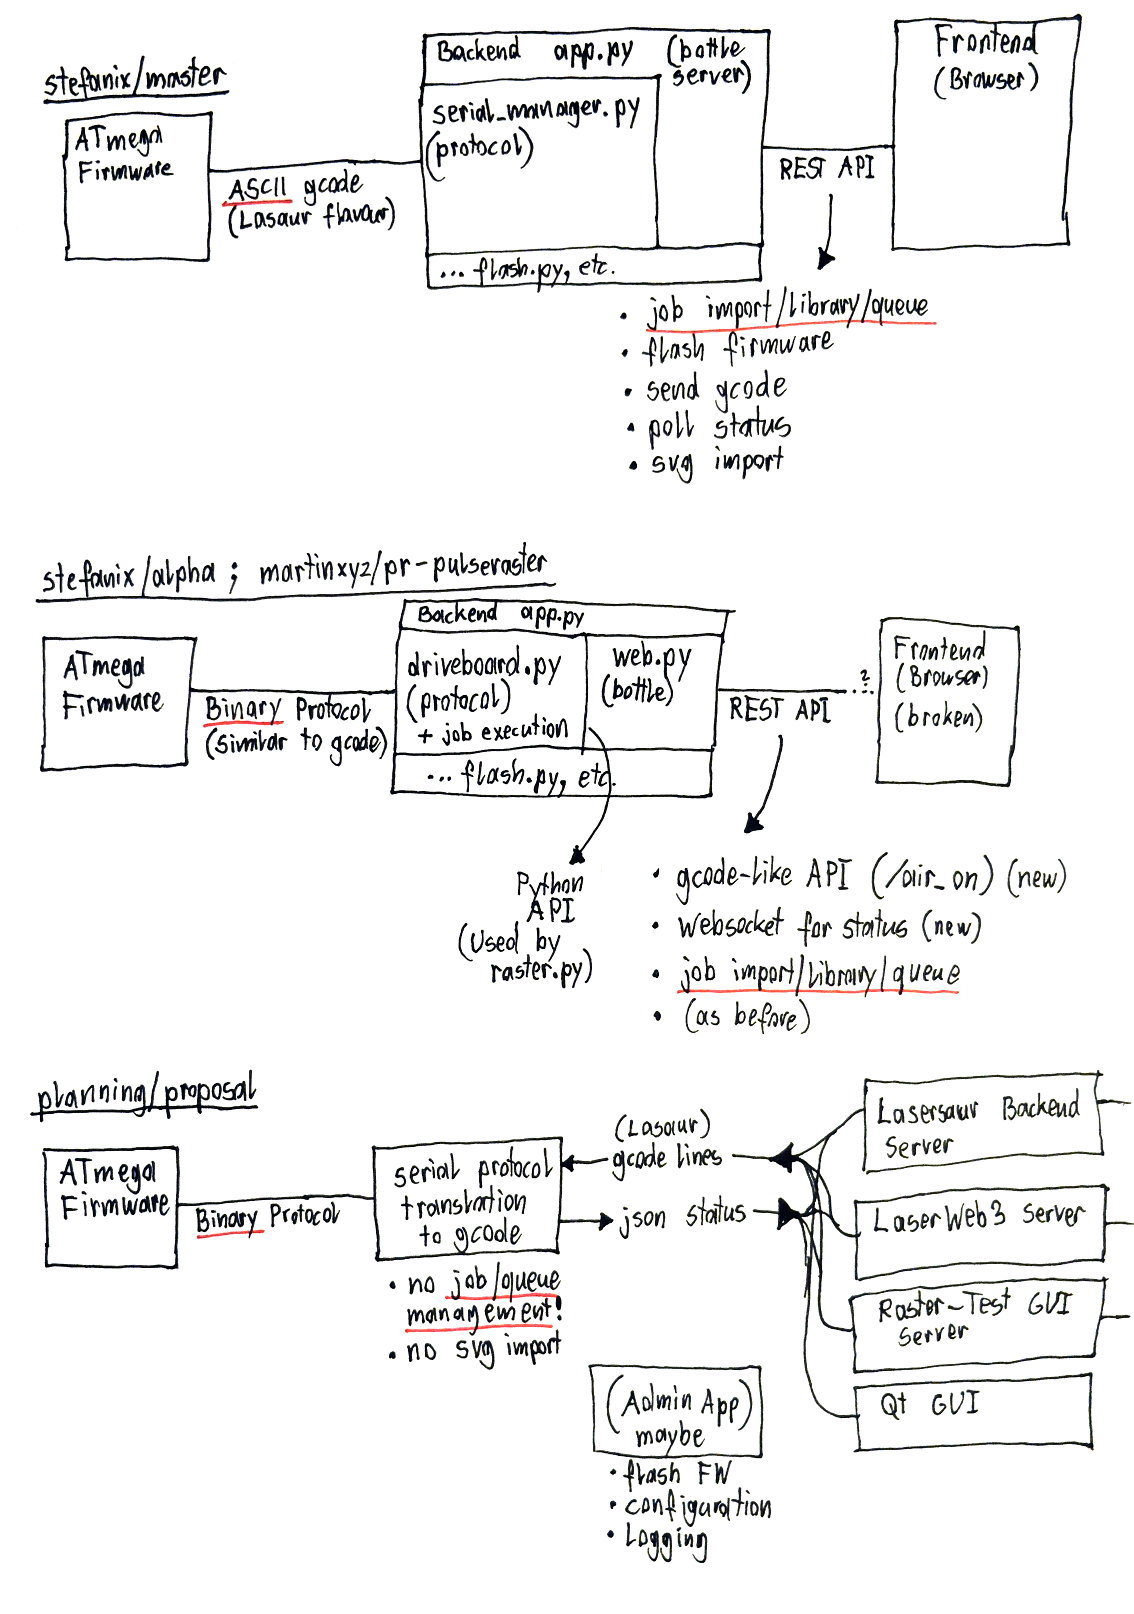 stefanix/master
ATmega
Firmware
ASCII gcode
(Lasaur flavour)
Backend app.py (bottle
server)
serial_manager.py
(protocol)
... flash.py, etc.
REST API
Frontend
(Browser)
• job import/library/queue
• flash firmware
• send gcode
• poll status
• svg import
stefanix/alpha ; martinxyz/pr-pulseraster
ATmega
Firmware
Binary Protocol
(similar to gcode)
Backend app.py
driveboard.py
(protocol)
+ job execution
web.py
(bottle)
... flash.py, etc.
REST API
..?..
Frontend
(Browser)
(broken)
Python
API
(Used by
raster.py)
• gcode-like API (/air_on) (new)
• Websocket for status (new)
• job import/library/queue
• (as before)
planning/proposal
ATmega
Firmware
Binary Protocol
serial protocol
translation
to gcode
• no job/queue
management!
• no svg import
(Lasaur)
gcode lines
json status
Lasersaur Backend
Server
LaserWeb3 Server
Raster-Test GUI
Server
Qt GUI
(Admin App)
maybe
• flash FW
• configuration
• Logging